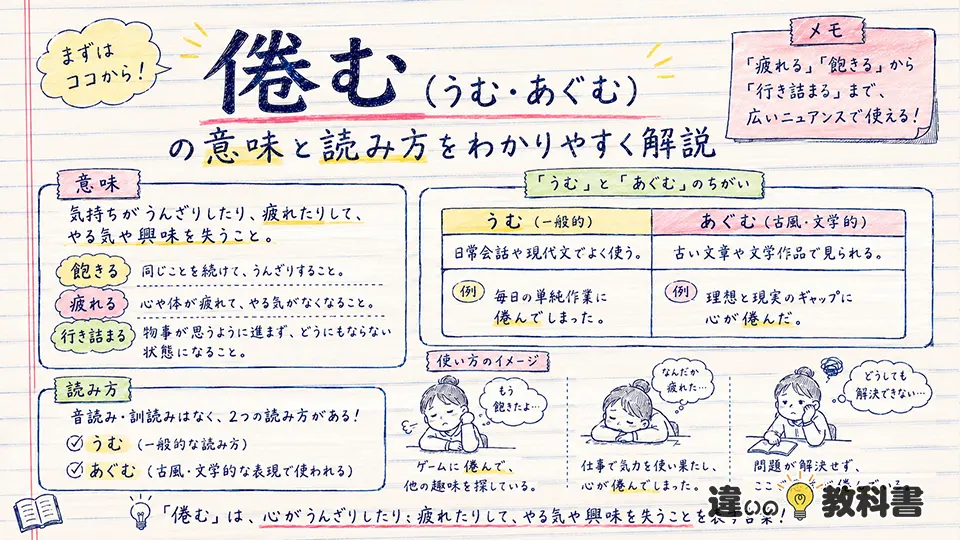 まずは
ココから!
倦む(うむ・あぐむ)
の意味と読み方をわかりやすく解説
メモ
「疲れる」「飽きる」から
「行き詰まる」まで、
広いニュアンスで使える!
意味
気持ちがうんざりしたり、疲れたりして、
やる気や興味を失うこと。
飽きる 同じことを続けて、うんざりすること。
疲れる 心や体が疲れて、やる気がなくなること。
行き詰まる 物事が思うように進まず、どうにもならない
状態になること。
読み方
音読み・訓読みはなく、2つの読み方がある!
うむ(一般的な読み方)
あぐむ(古風・文学的な表現で使われる)
「うむ」と「あぐむ」のちがい
うむ(一般的) あぐむ(古風・文学的)
日常会話や現代文でよく使う。 古い文章や文学作品で見られる。
例 毎日の単純作業に
倦んでしまった。
例 理想と現実のギャップに
心が倦んだ。
使い方のイメージ
もう
飽きたよ…
ゲームに倦んで、
他の趣味を探している。
なんだか
疲れた…
仕事で気力を使い果たし、
心が倦んでしまった。
どうしても
解決できない…
問題が解決せず、
「倦む」は、心がうんざりしたり、疲れたりして、やる気や興味を失うことを表す言葉!
違いの教科書